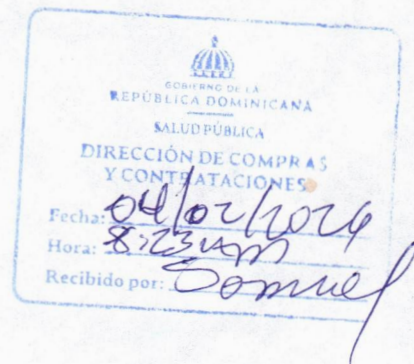 GOBIERNO DE LA
REPÚBLICA DOMINICANA
SALUD PÚBLICA
DIRECCIÓN DE COMPRAS
Y CONTRATACIONES
Fecha: 04/02/2026
Hora: 8:23 am
Recibido por: Samuel